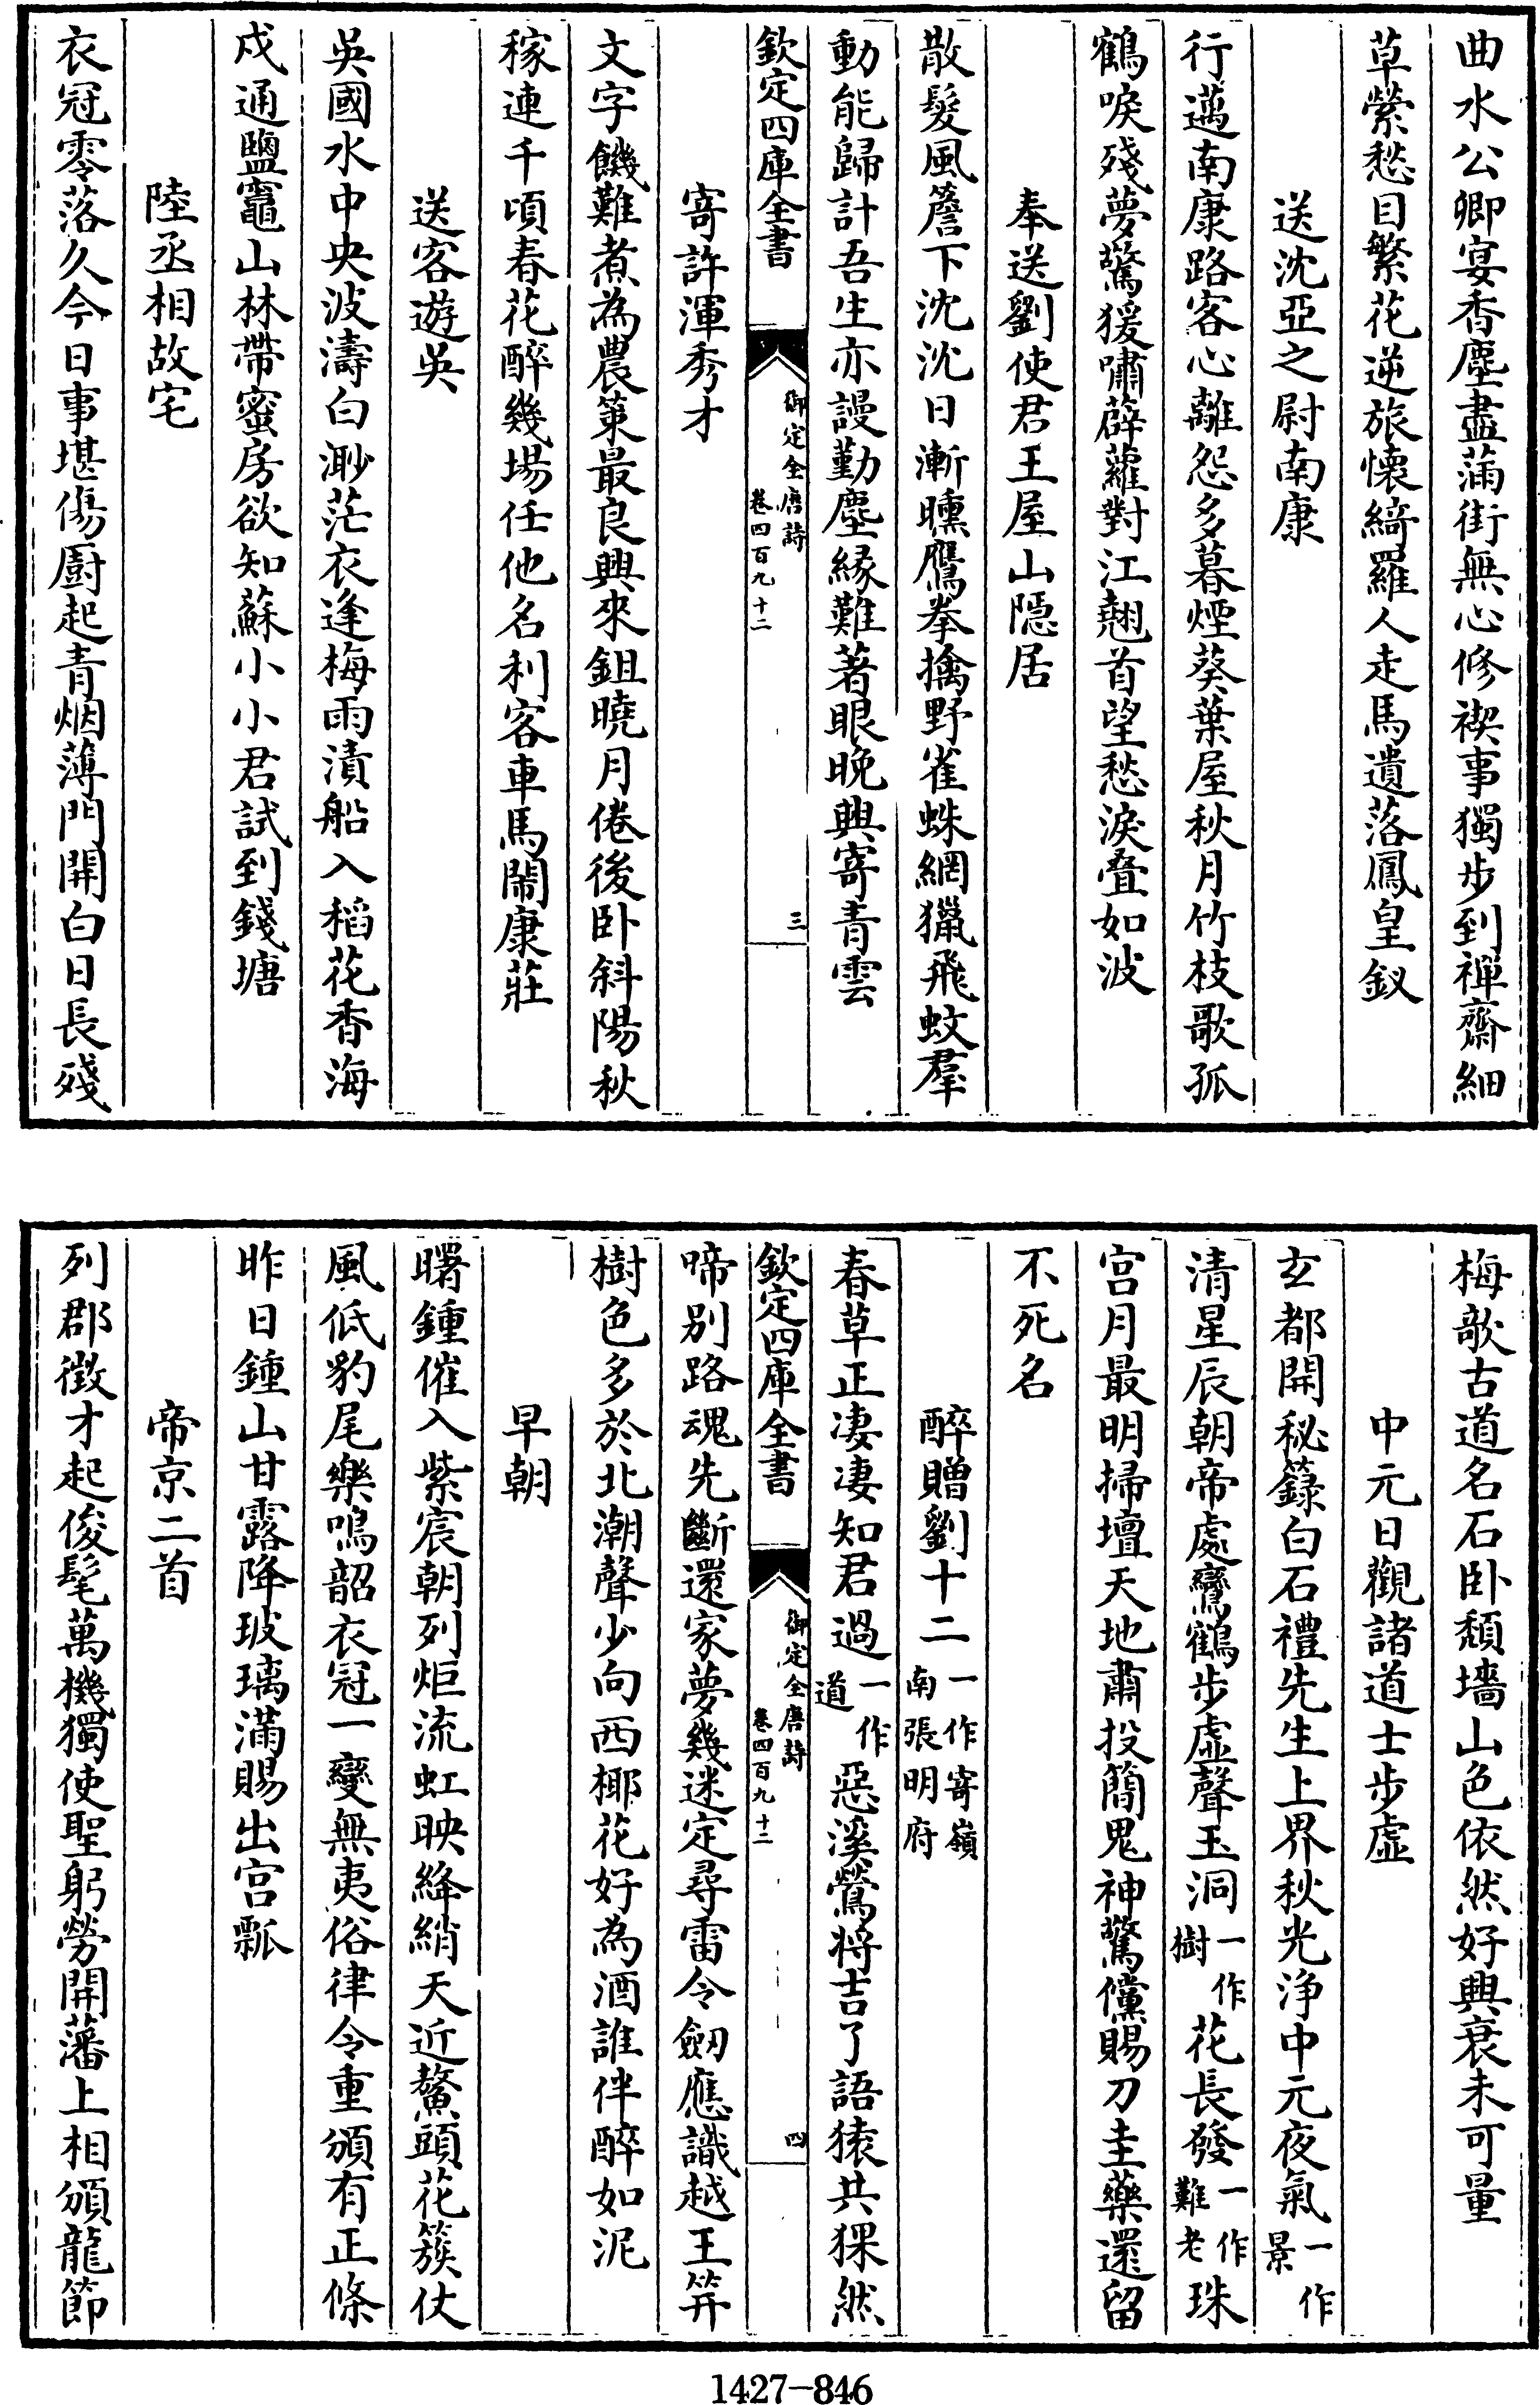 曲水公卿宴香塵盡滿街無心修禊事獨步到禪齋細
草縈愁目繁花逆旅懷綺羅人走馬遺落鳳皇釵
送沈亞之尉南康
行邁南康路客心離怨多暮煙葵葉屋秋月竹枝歌孤
鶴唳殘夢驚猨嘯薜蘿對江翹首望愁淚疊如波
奉送劉使君王屋山隱居
散髮風簷下沈沈日漸曛鷹拳擒野雀蛛網獵飛蚊羣
動能歸計吾生亦謾勤塵緣難著眼晚興寄青雲
欽定四庫全書
御定全唐詩
卷四百九十二
三
寄許渾秀才
文字饑難煮為農策最良興來鉏曉月倦後卧斜陽秋
稼連千頃春花醉幾場任他名利客車馬鬧康莊
送客遊吳
吳國水中央波濤白渺茫衣逢梅雨漬船入稻花香海
戍通鹽竈山林帶蜜房欲知蘇小小君試到錢塘
陸丞相故宅
衣冠零落久今日事堪傷厨起青烟薄門開白日長殘
梅欹古道名石卧頹墻山色依然好興衰未可量
中元日觀諸道士步虛
玄都開秘籙白石禮先生上界秋光淨中元夜氣一作景
清星辰朝帝處鸞鶴步虛聲玉洞一作樹花長發一作難老珠
宮月最明掃壇天地肅投簡鬼神驚儻賜刀圭藥還留
不死名
醉贈劉十二一作寄嶺南張明府
春草正凄凄知君過一作道惡溪鶯將吉了語猿共猓然
欽定四庫全書
御定全唐詩
卷四百九十二
四
啼別路魂先斷還家夢幾迷定尋雷令劒應識越王笄
樹色多於北潮聲少向西椰花好為酒誰伴醉如泥
早朝
曙鍾催入紫宸朝列炬流虹映絳綃天近鰲頭花簇仗
風低豹尾樂鳴韶衣冠一變無夷俗律令重頒有正條
昨日鍾山甘露降玻璃滿賜出宮瓢
帝京二首
列郡徵才起俊髦萬機獨使聖躬勞開藩上相頒龍節
1427-846